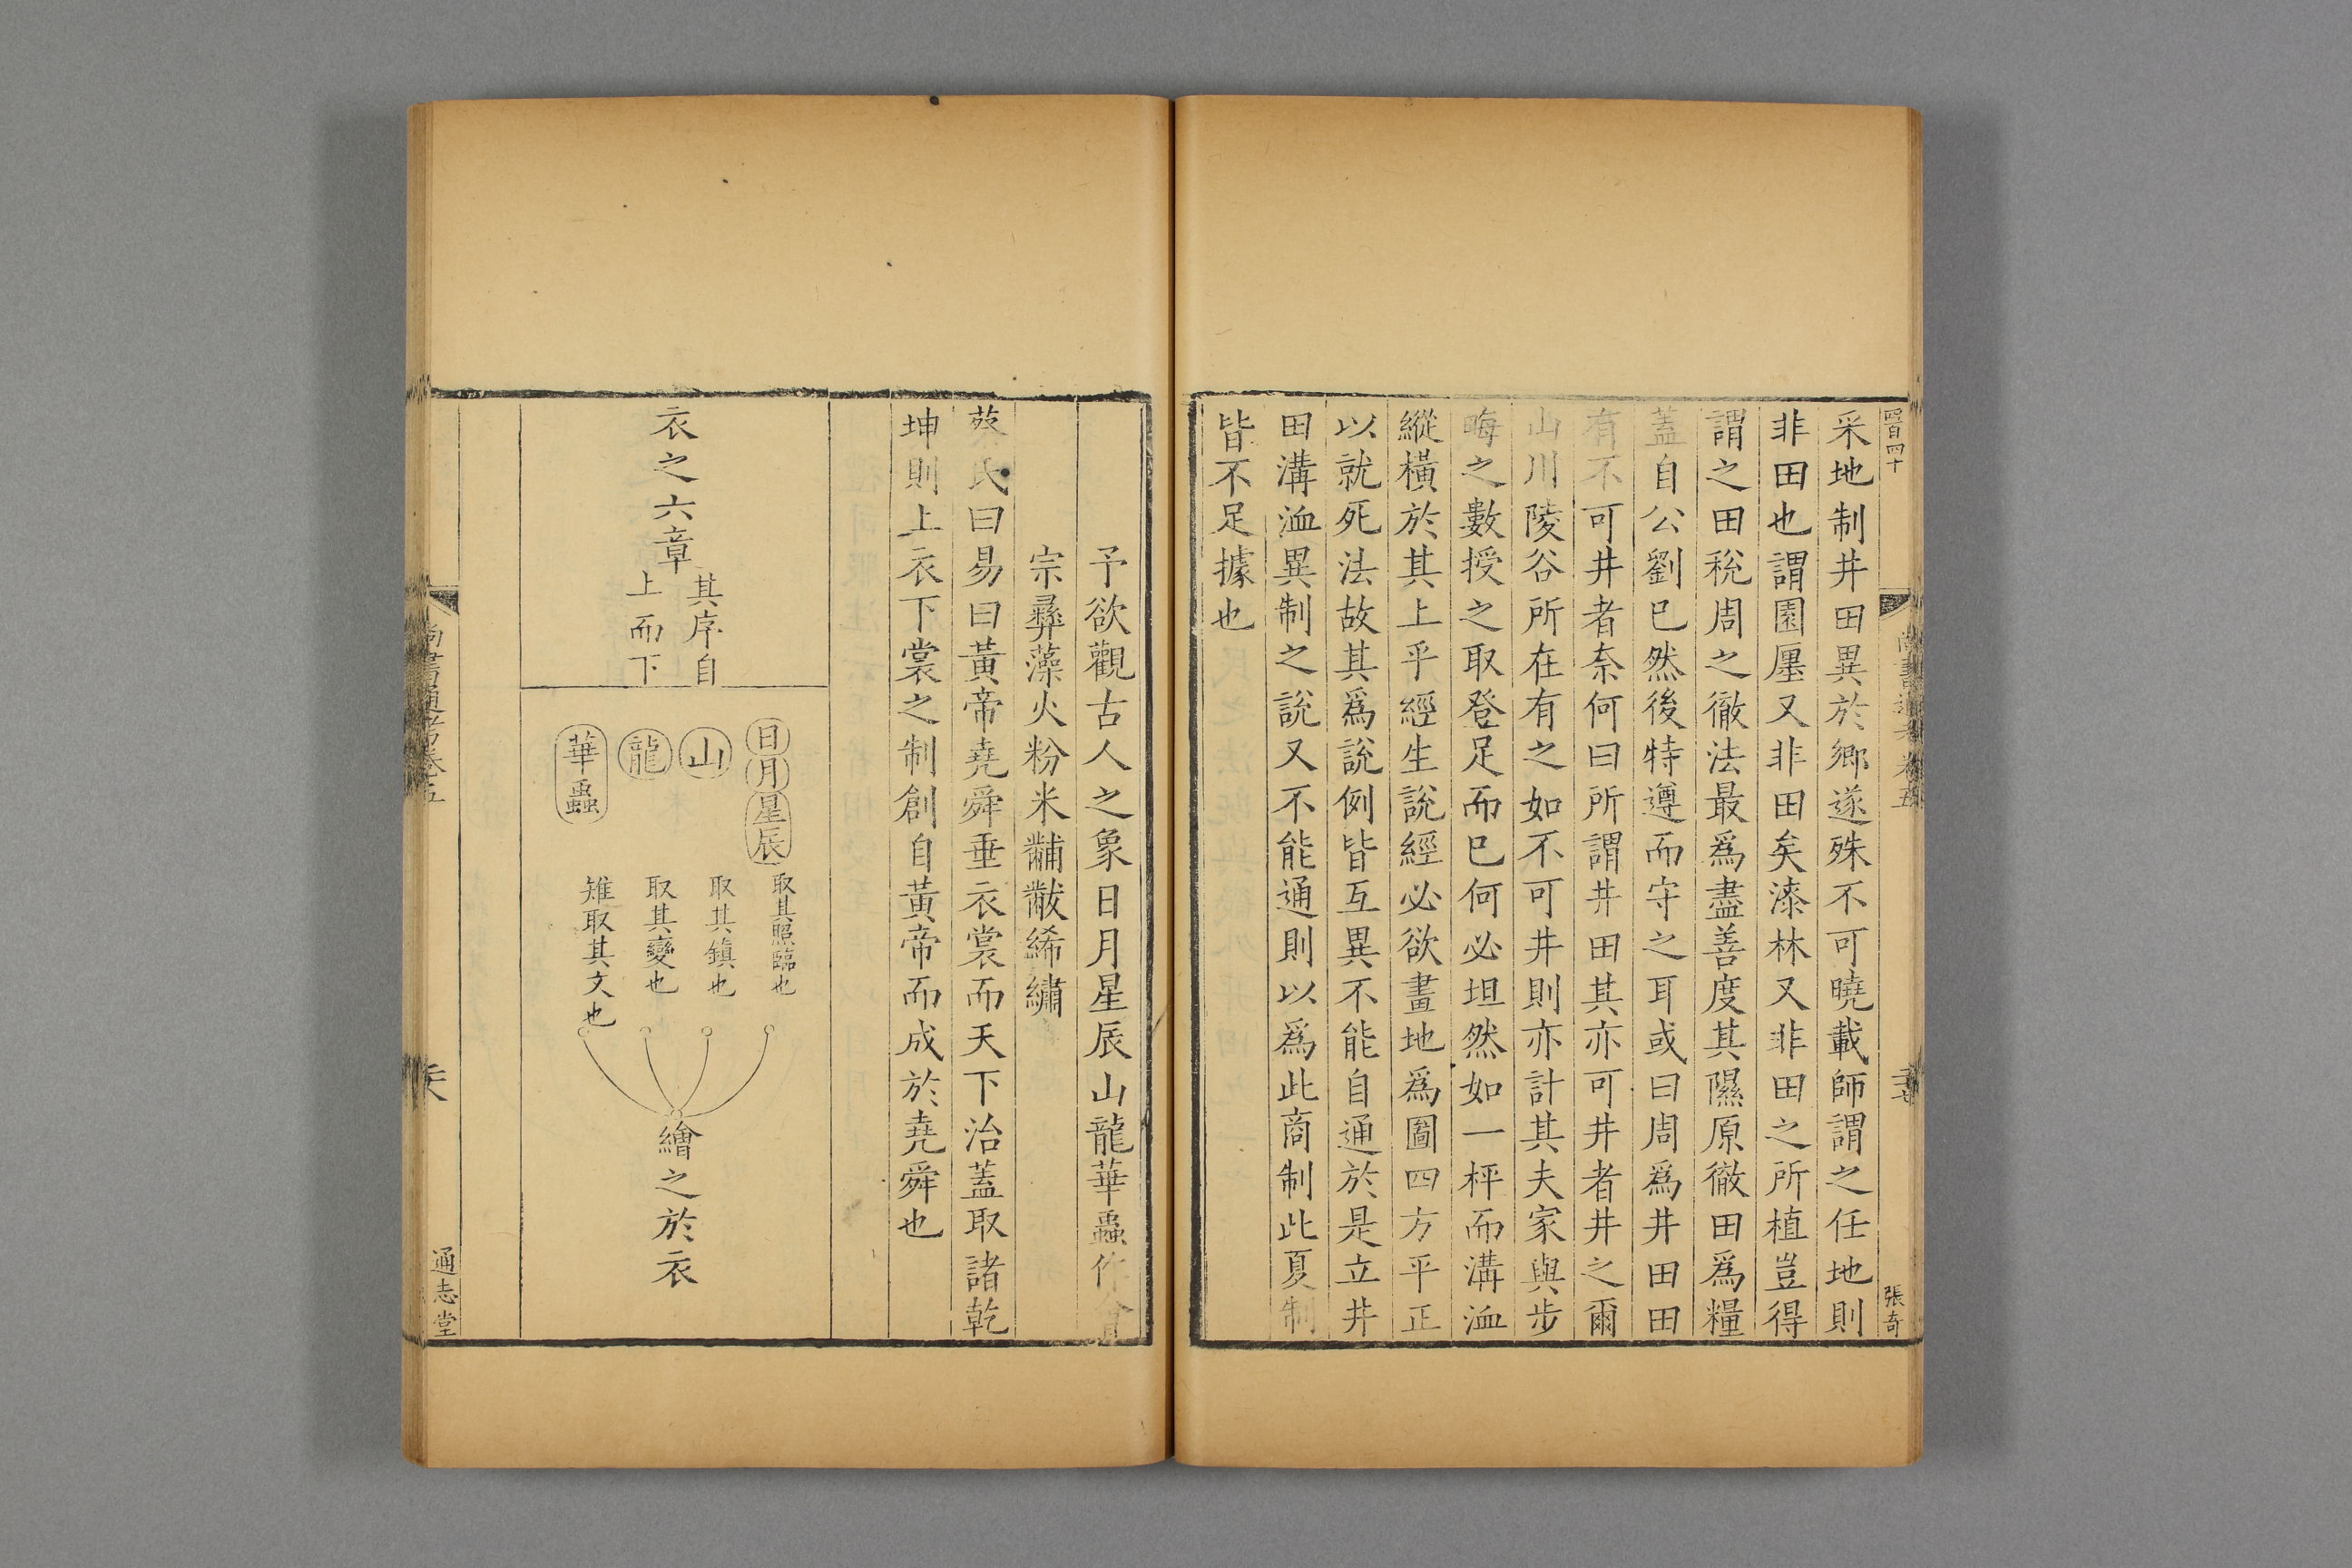 四百四十
尚書通考卷五
張奇
采地制井田異於鄉遂殊不可曉載師謂之任地則
非田也謂園廛又非田矣漆林又非田之所植豈得
謂之田稅周之徹法最爲盡善度其隰原徹田爲糧
蓋自公劉巳然後特遵而守之耳或曰周爲井田田
有不可井者奈何曰所謂井田其亦可井者井之爾
山川陵谷所在有之如不可井則亦計其夫家與步
晦之數授之取登足而巳何必坦然如一枰而溝洫
縱橫於其上乎經生說經必欲畫地爲圖四方平正
以就死法故其爲說例皆互異不能自通於是立井
田溝洫異制之說又不能通則以爲此商制此夏制
皆不足據也
予欲觀古人之象日月星辰山龍華蟲作會
宗彞藻火粉米黼黻絺繡
蔡氏曰易曰黃帝堯舜垂衣裳而天下治蓋取諸乾
坤則上衣下裳之制創自黃帝而成於堯舜也
衣之六章
其序自
上而下
日月星辰
取其照臨也
山
取其鎮也
龍
取其變也
華蟲
雉取其文也
繪之於衣
尚書通考卷五
通志堂